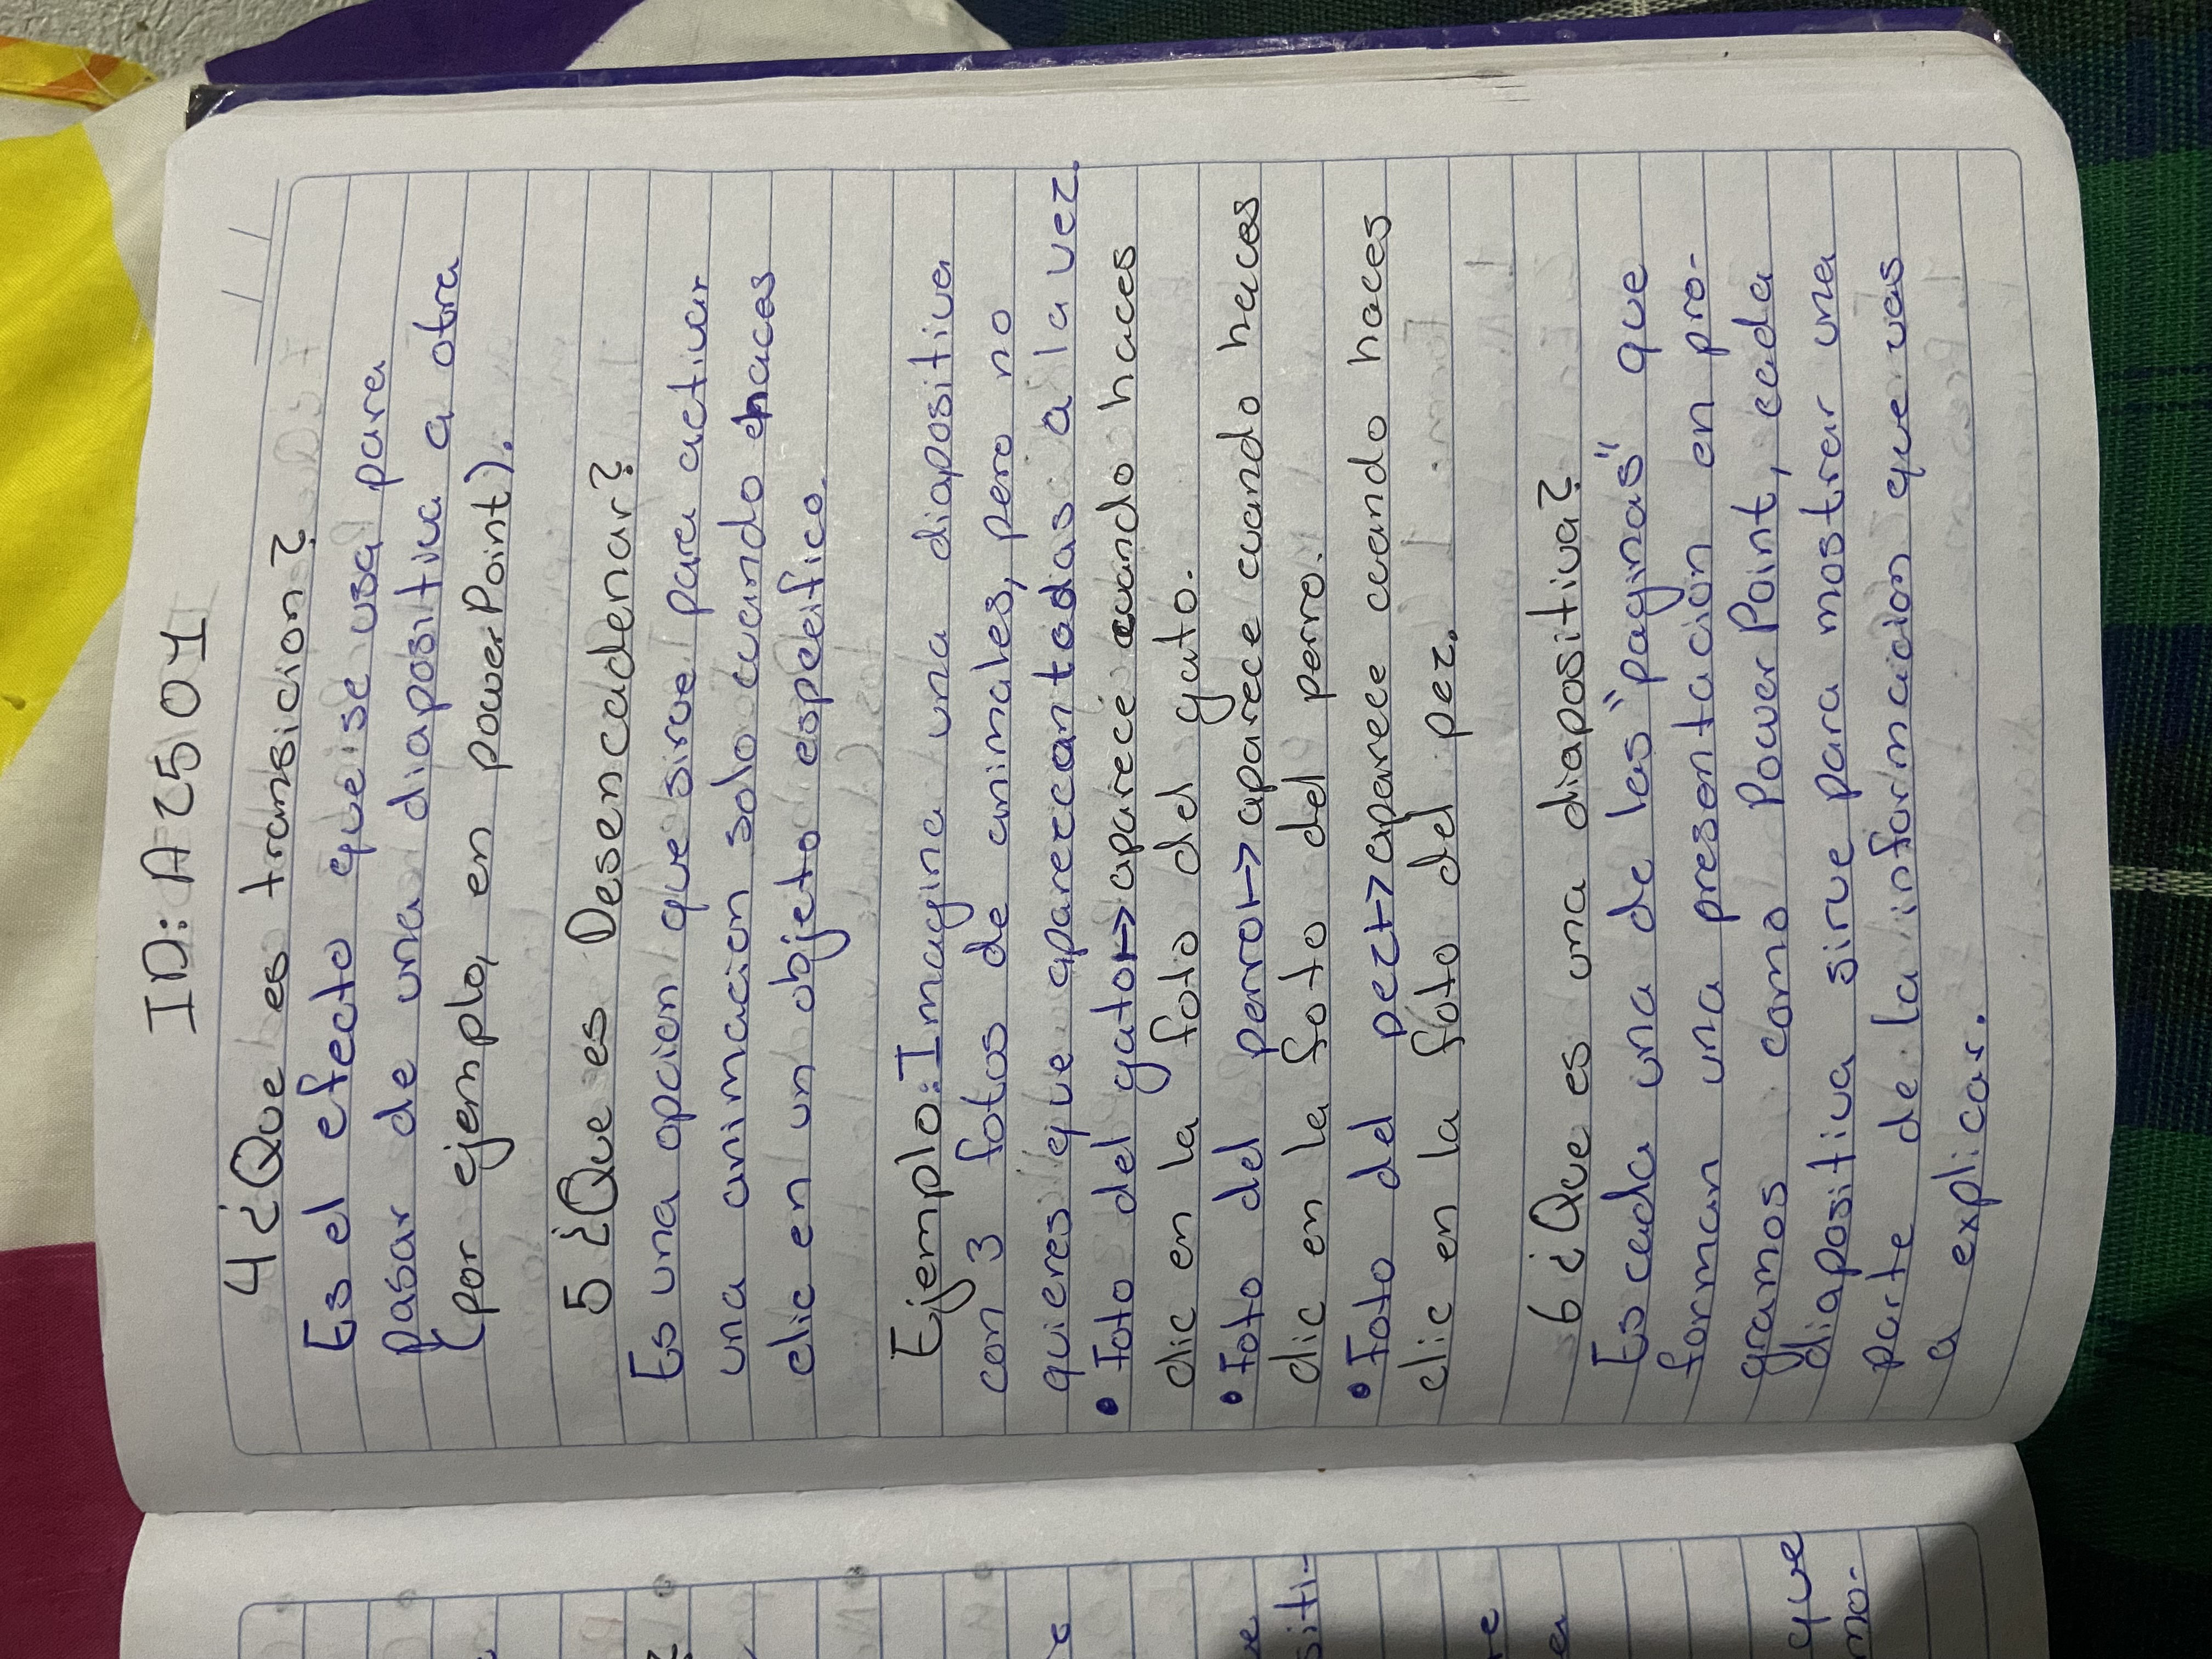 ID: A2501
4 ¿Que es transicion?
Es el efecto que se usa para
pasar de una diapositiva a otra
(por ejemplo, en powerPoint).
5 ¿Que es Desencadenar?
Es una opcion que sirve para activar
una animacion solo cuando haces
clic en un objeto espeifico.
Ejemplo: Imagina una diapositiva
con 3 fotos de animales, pero no
quieres que aparezcan todas a la vez.
• Foto del gato → aparece cuando haces
clic en la foto del gato.
• Foto del perro → aparece cuando haces
clic en la foto del perro.
• Foto del pez → aparece cuando haces
clic en la foto del pez.
6 ¿Que es una diapositiva?
Es cada una de las "paginas" que
forman una presentacion en pro-
gramos como PowerPoint, cada
diapositiva sirve para mostrar una
parte de la informacion que vas
a explicar.
siti-
que